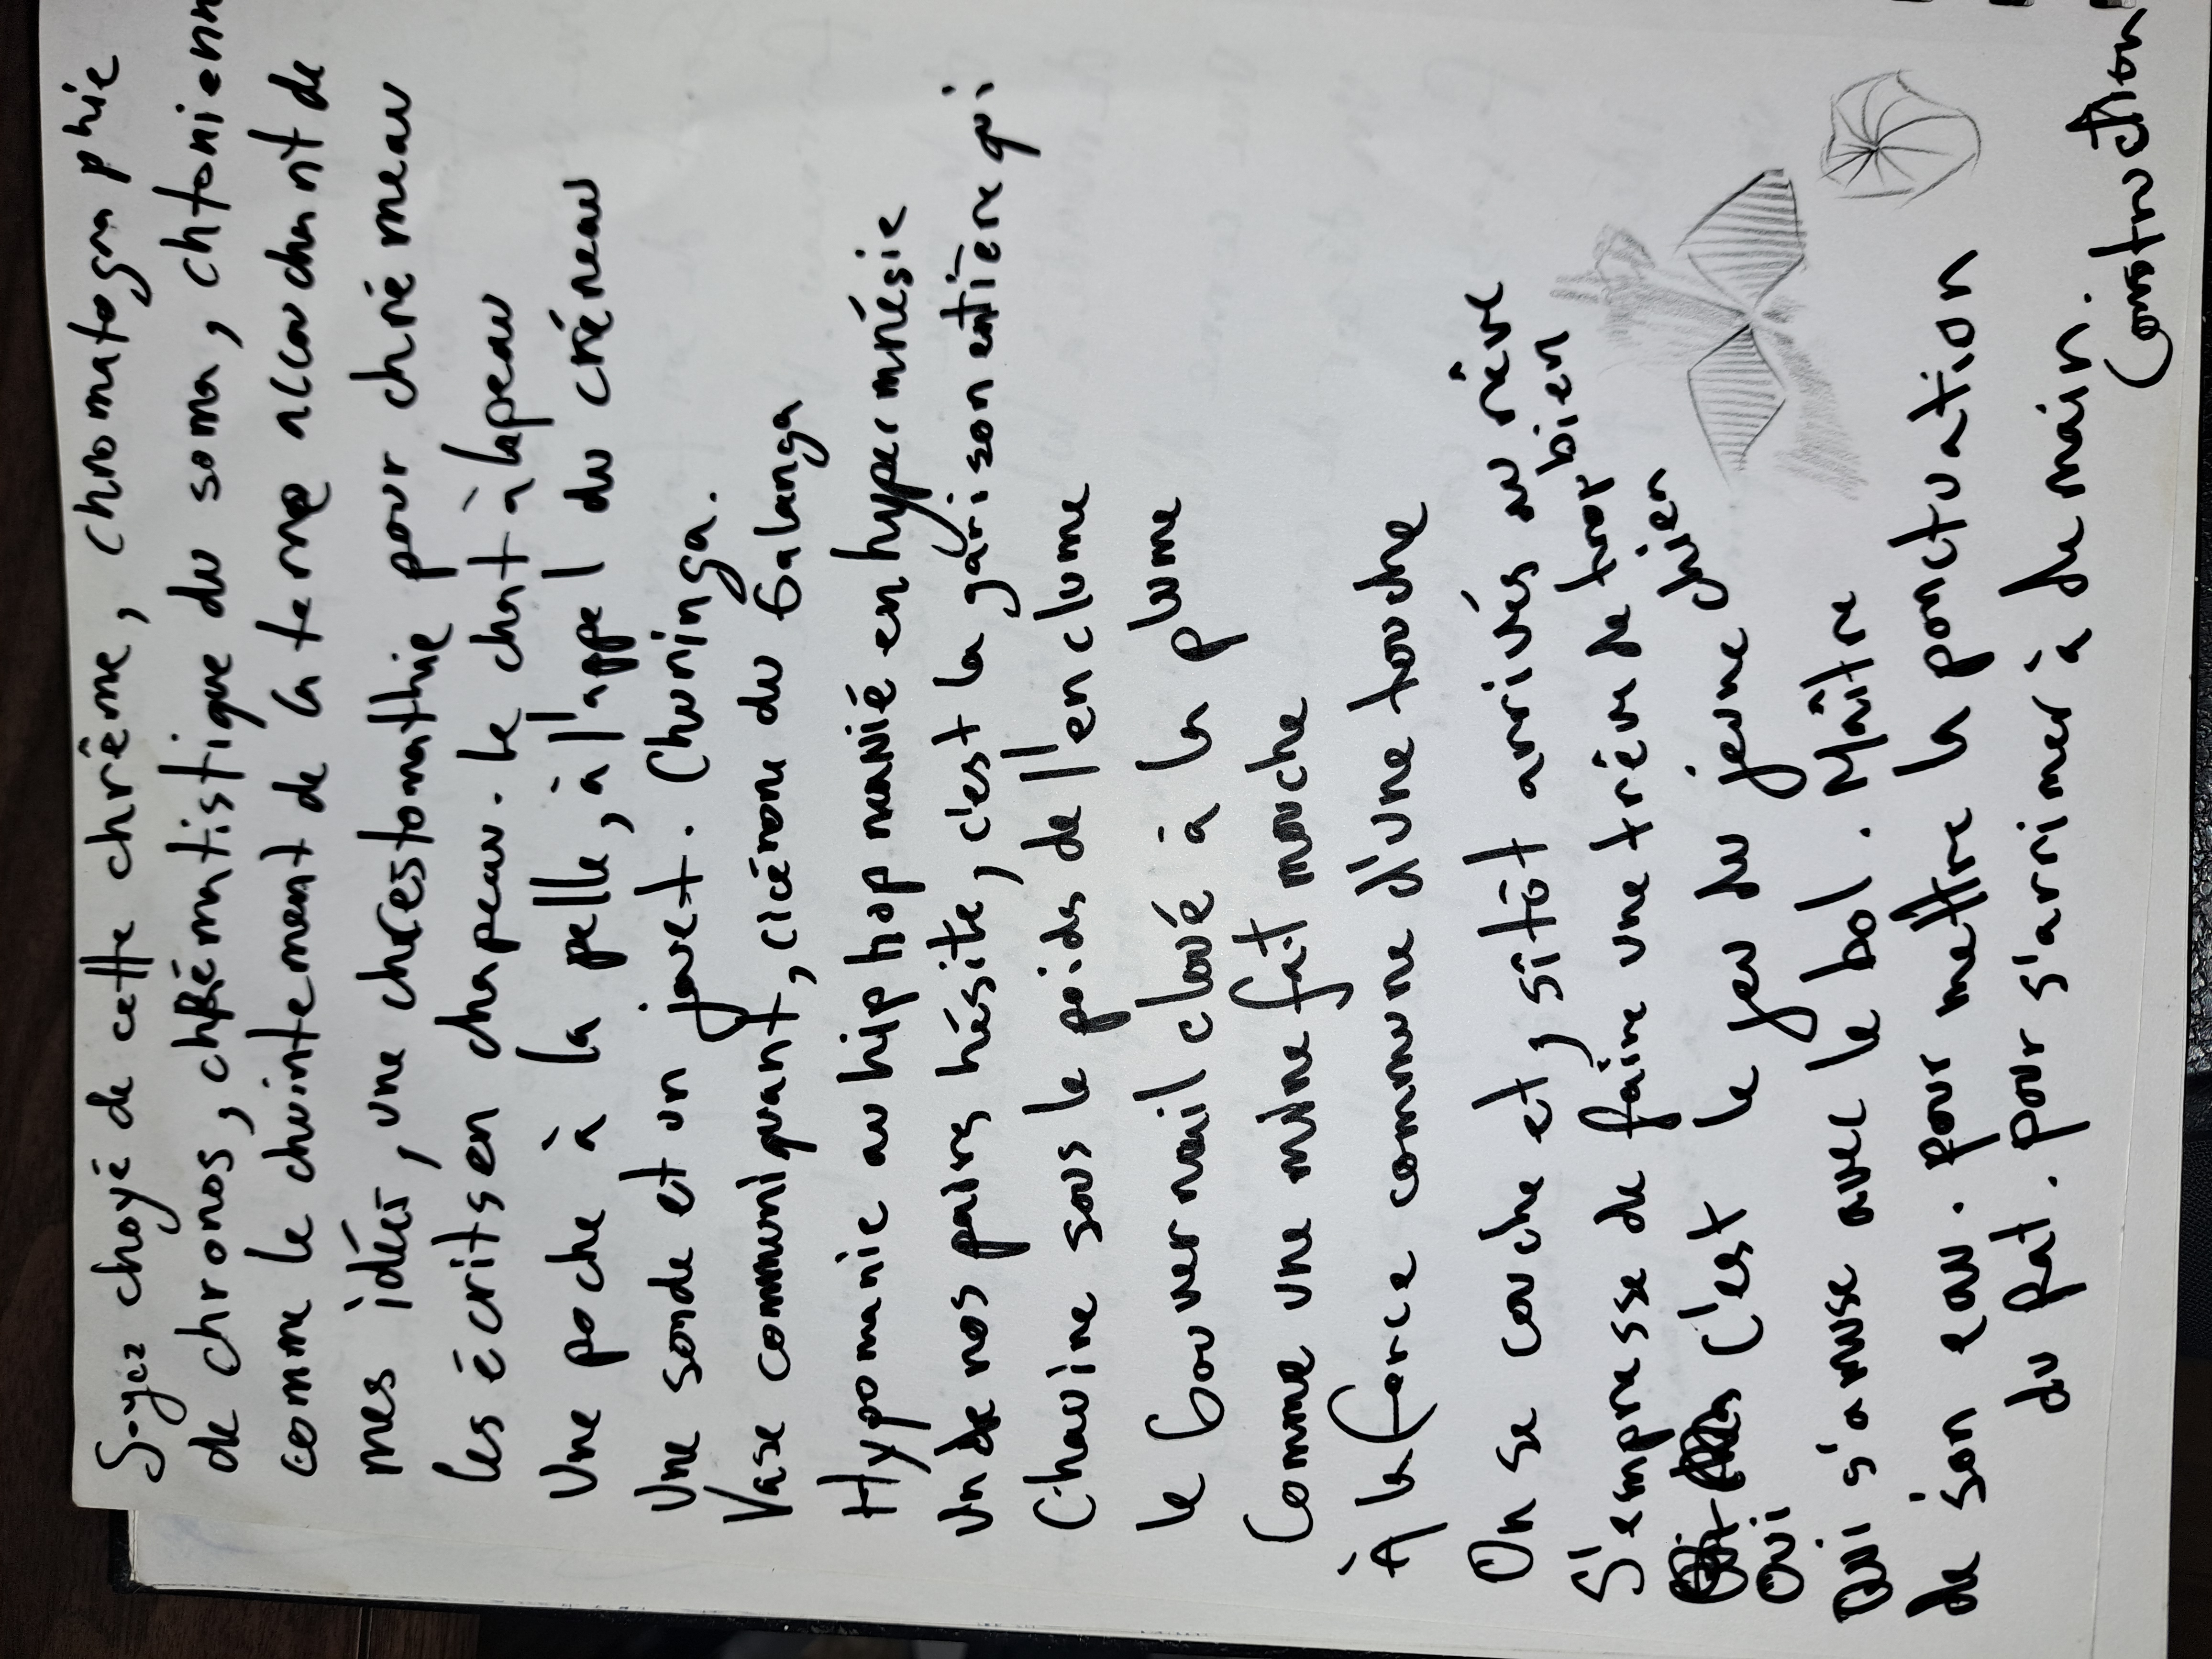 Soyez choyé de cette chrême, chromatographie
de chronos, chrématistique du soma, chtonienn
comme le chuintement de la terre accouchant de
mes idées, une chrestomathie pour chrémeau
les écrits en chapeau. Le chat à la peau
Une poche à la pelle, à l'appel du créneau
Une sonde et un javet. Churinga.
Vase communiquant, cicérone du Galanga
Hypomanie au hip hop manié en hypermnésie
Un de nos pairs hésite, c'est la guérison entière qui
Chauvine sous le poids de l'enclume
le Gouvernail cloué à la plume
Comme une mine fait mouche
À la force commune d'une touche
On se couche et, sitôt arrivés au rêve
S'empresse de faire une trêve de trop bien
C'est le jeu du jeune chien
Oui
Qui s'amuse avec le bol. Maître
de son eau. Pour mettre la ponctuation
du fat. Pour s'arrimer à demain.
Construction